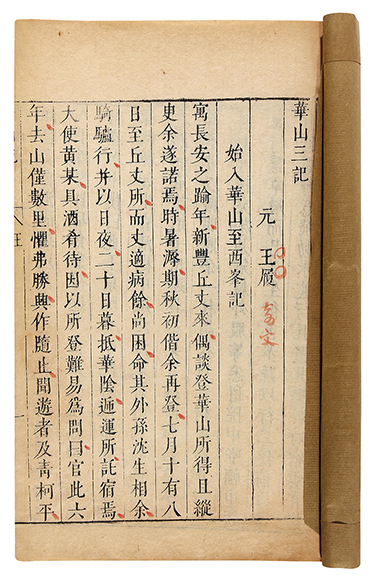 華山三記
元 王履
奇文
始入華山至西峯記
寓長安之踰年新豐丘丈來偶談登華山所得且縱
臾余遂諾焉時暑溽期秋初偕余再登七月十有八
日至丘丈所而丈適病餘尚困命其外孫沈生相余
騎驢行并以日夜二十日暮抵華陰遞運所託宿焉
大使黃某具酒肴待因以所登難易為問曰官此六
年去山僅數里懼弗勝輿作隨止聞遊者及青柯平